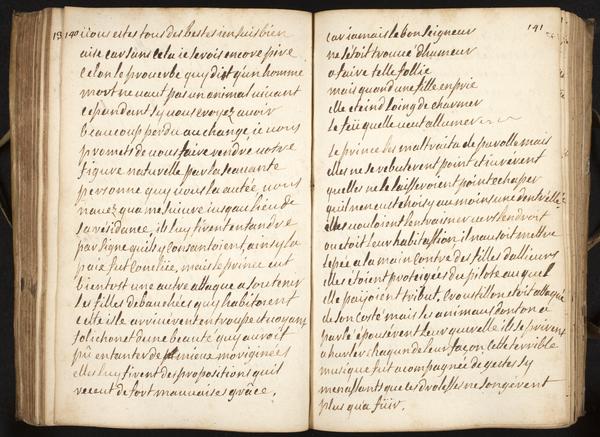 140
vous estes tous des bestes j'en suis bien
aise car sans cela je serois encore pire
celon le proverbe quy dist qu'un homme
mort ne vaut pas un animal vivant
cependant sy vous croyez avoir
beaucoup perdu au change je vous
promets de vous faire rendre votre
figure naturelle par la scavante
personne quy vous la autée vous
navez qua me suivre jusqau lieu de
sa résidance, ils luy firent entandre
par signe quils y consantoient, ainsy la
paix fut conclüe, mais le prince eut
bientost une autre attaque a soutenir
les filles debauchées quy habitoient
cette isle arrivèrent en troupe et voyant
solichon et d'une beauté quy auroit
pû entanter de mieux morigineés
elles luy firent des propositions quil
receut de fort mauvaise grâce.
141
car jamais le bon seigneur
ne s'étoit trouvé d'humeur
a faire telle follie
mais quand une fille en prie
elle eteind loing de charmer
le feü quelle veut allumer
le prince les maltraita de parolle mais
elles ne se rebuterent point et jurèrent
quelles ne le laisseroient point échaper
quil nen eut choisy au moins une dentrélle
elles vouloient lentraisner vers lendroit
ou etoit leur habitassion il nausoit mettre
lepée a la main contre des filles dallieurs
elles étoient protegées du pilote auquel
elle paijoient tribut, Croustillon etoit attaqué
de son costé mais les animaux dont on a
parlé épousèrent leur querelle ils se prirent
a hurler chaqun de leur façon cette terrible
musique fut acompagnée de gestes sy
menassants que les drolesses ne songèrent
plus qua füir.